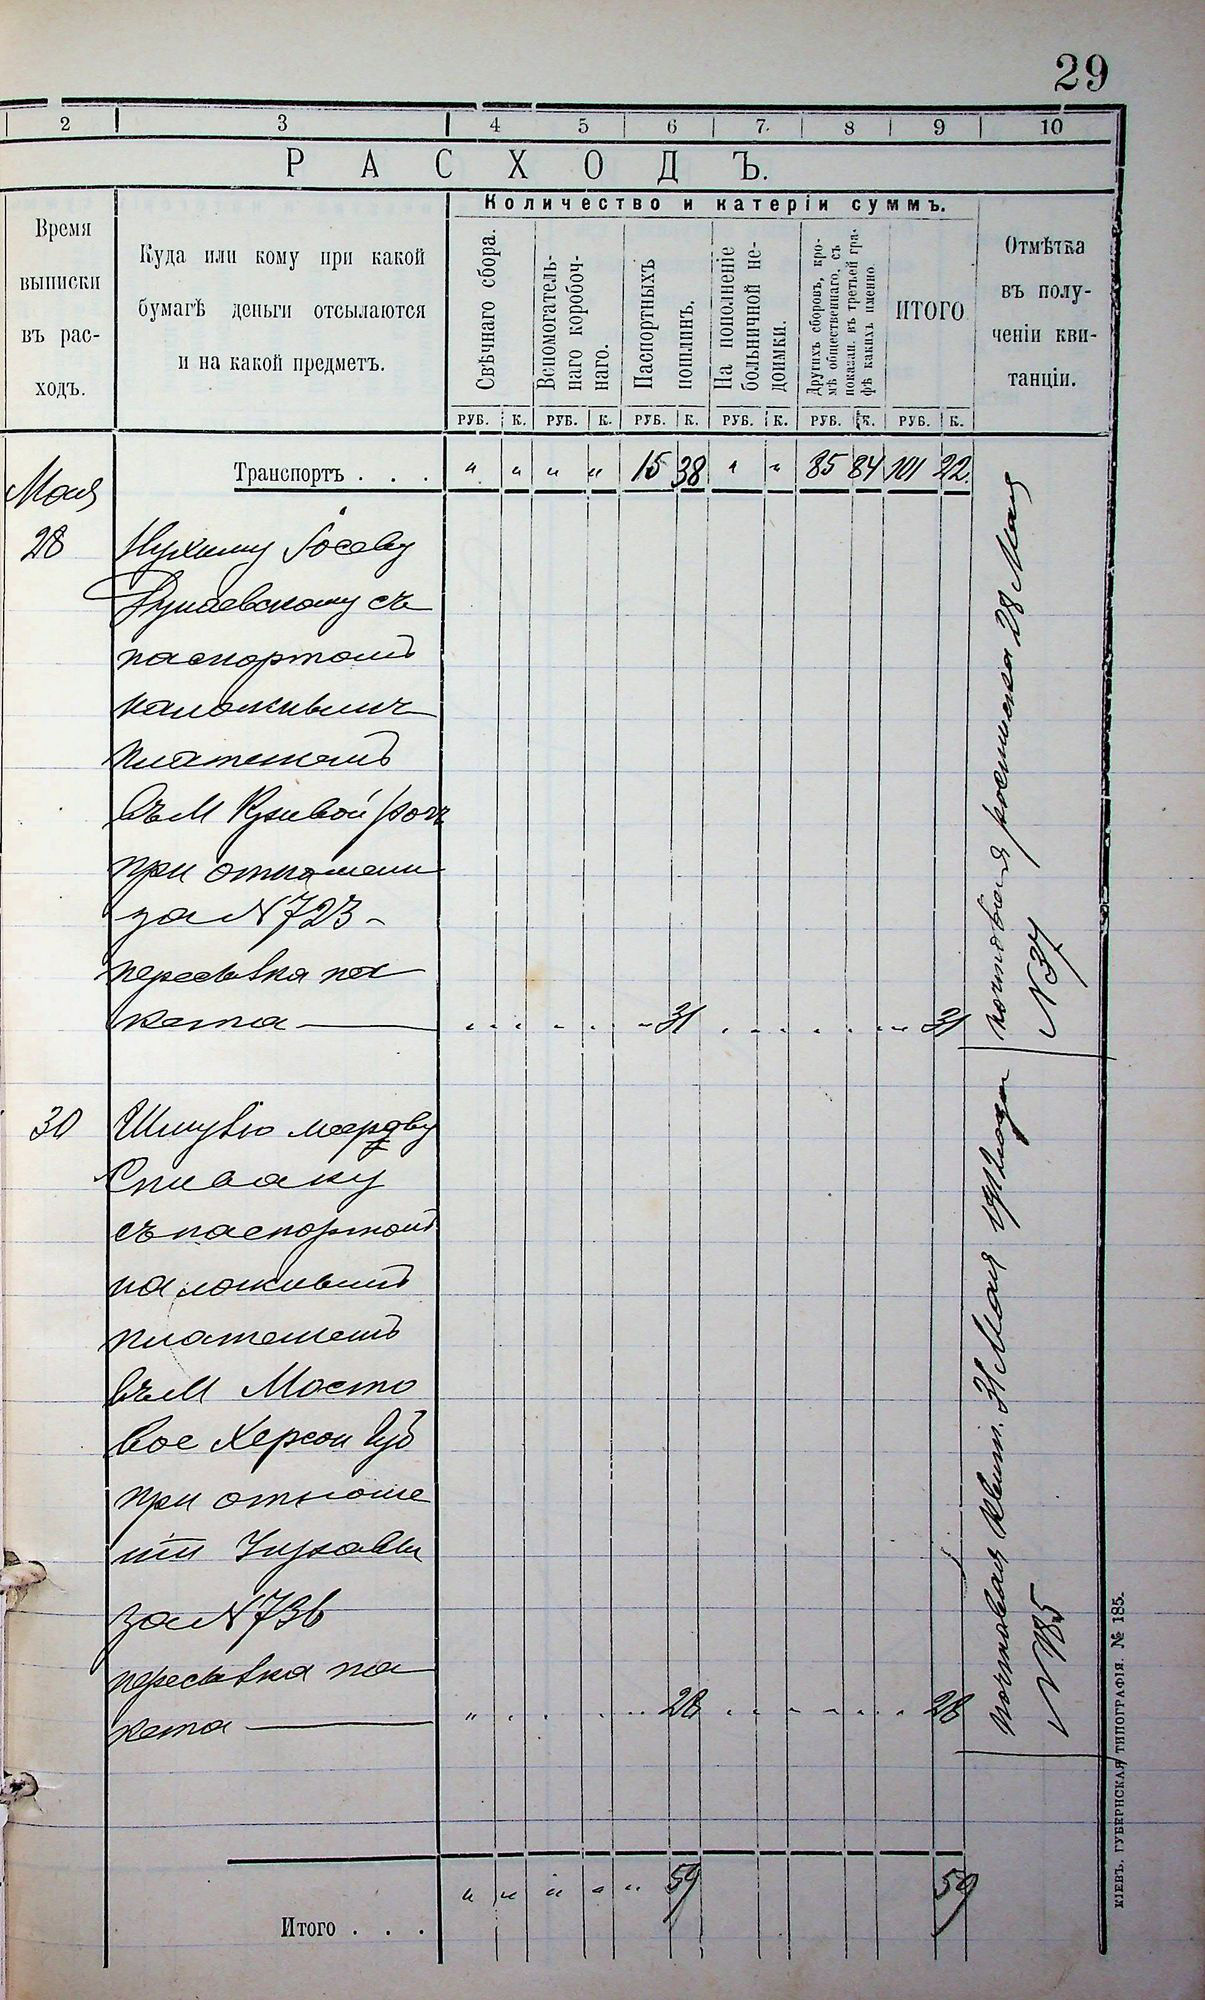 29
2 3 4 5 6 7. 8 9 10
РАСХОДЪ.
Время
выписки
въ рас-
ходъ.
Куда или кому при какой
бумагѣ деньги отсылаются
и на какой предметъ.
Количество и катеріи суммъ.
Свѣчнаго сбора.
Вспомогатель-
наго коробоч-
наго.
Паспортныхъ
пошлинъ.
На пополненіе
больничной не-
доимки.
Другихъ сборовъ, кро-
мѣ общественнаго, съ
показан. въ третьей гра-
фѣ какихъ именно.
ИТОГО
Отмѣтка
въ полу-
ченіи кви-
танціи.
РУБ. К. РУБ. К. РУБ. К. РУБ. К. РУБ. К. РУБ. К.
Транспортъ . . . " " " " 15 38 " " 85 84 101 22
Мая
28 Нухиму Іосеву
Дунаевскому съ
паспортомъ
наложнымъ
платежомъ
въ М Кривой рогъ
при отношени
за N 723 -
пересылка па
кета 31 31
почтовая росписка 28 Мая
N 37
30 Шмулю
Спиваку
съ паспортомъ
наложнымъ
платежемъ
въ М Мосто
вое Херсон Губ
при отноше
ніи Управы
за N 736
пересылка па
кета 28 28
почтовая квит. 31 Мая 1912 года
N 185
Итого . . . " " " " " 59 59
КІЕВЪ, ГУБЕРНСКАЯ ТИПОГРАФІЯ. № 185.